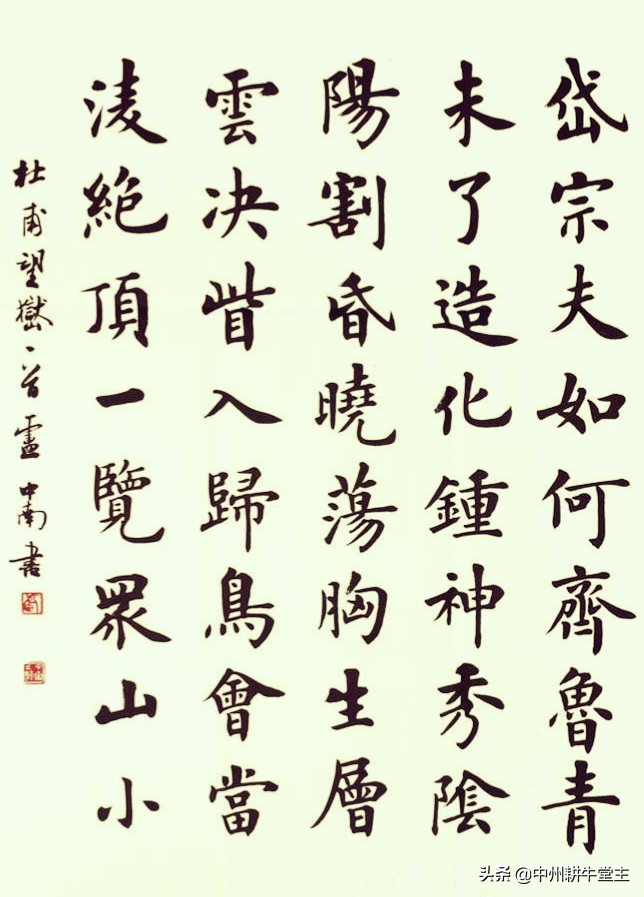 岱宗夫如何齊魯青
未了造化鍾神秀陰
陽割昏曉蕩胸生層
雲决眥入歸鳥會當
淩絶頂一覽眾山小
杜甫望嶽一首盧中南書
头条 @中州耕牛堂主